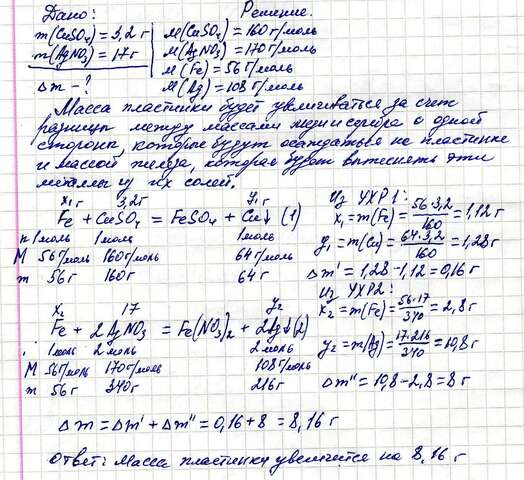 Дано:
Решение.
m(CuSO4) = 3,2 г
m(AgNO3) = 17 г
Δm - ?
M(CuSO4) = 160 г/моль
M(AgNO3) = 170 г/моль
M(Fe) = 56 г/моль
M(Ag) = 108 г/моль
Масса пластинки будет увеличиваться за счет
разницы между массами меди и серебра с одной
стороны, которые будут осаждаться на пластинке
и массой железа, которое будет вытеснять эти
металлы из их солей.
x₁ г 3,2г y₁ г
Fe + CuSO4 = FeSO4 + Cu↓ (1)
n 1моль 1моль 1моль
M 56г/моль 160г/моль 64 г/моль
m 56г 160г 64 г
Из УХР1:
x₁ = m(Fe) = 56·3,2/160 = 1,12 г
y₁ = m(Cu) = 64·3,2/160 = 1,28г
Δm' = 1,28 - 1,12 = 0,16 г
x₂ 17 y₂
Fe + 2AgNO3 = Fe(NO3)2 + 2Ag↓ (2)
1моль 2 моль 2 моль
M 56г/моль 170г/моль 108г/моль
m 56г 340г 216г
Из УХР2:
x₂ = m(Fe) = 56·17/340 = 2,8 г
y₂ = m(Ag) = 17·216/340 = 10,8 г
Δm'' = 10,8 - 2,8 = 8 г
Δm = Δm' + Δm'' = 0,16 + 8 = 8,16 г
Ответ: Масса пластинки увеличится на 8,16 г